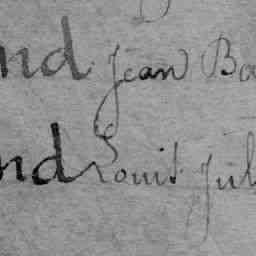 nd Jean Ba
nd Louis Jul